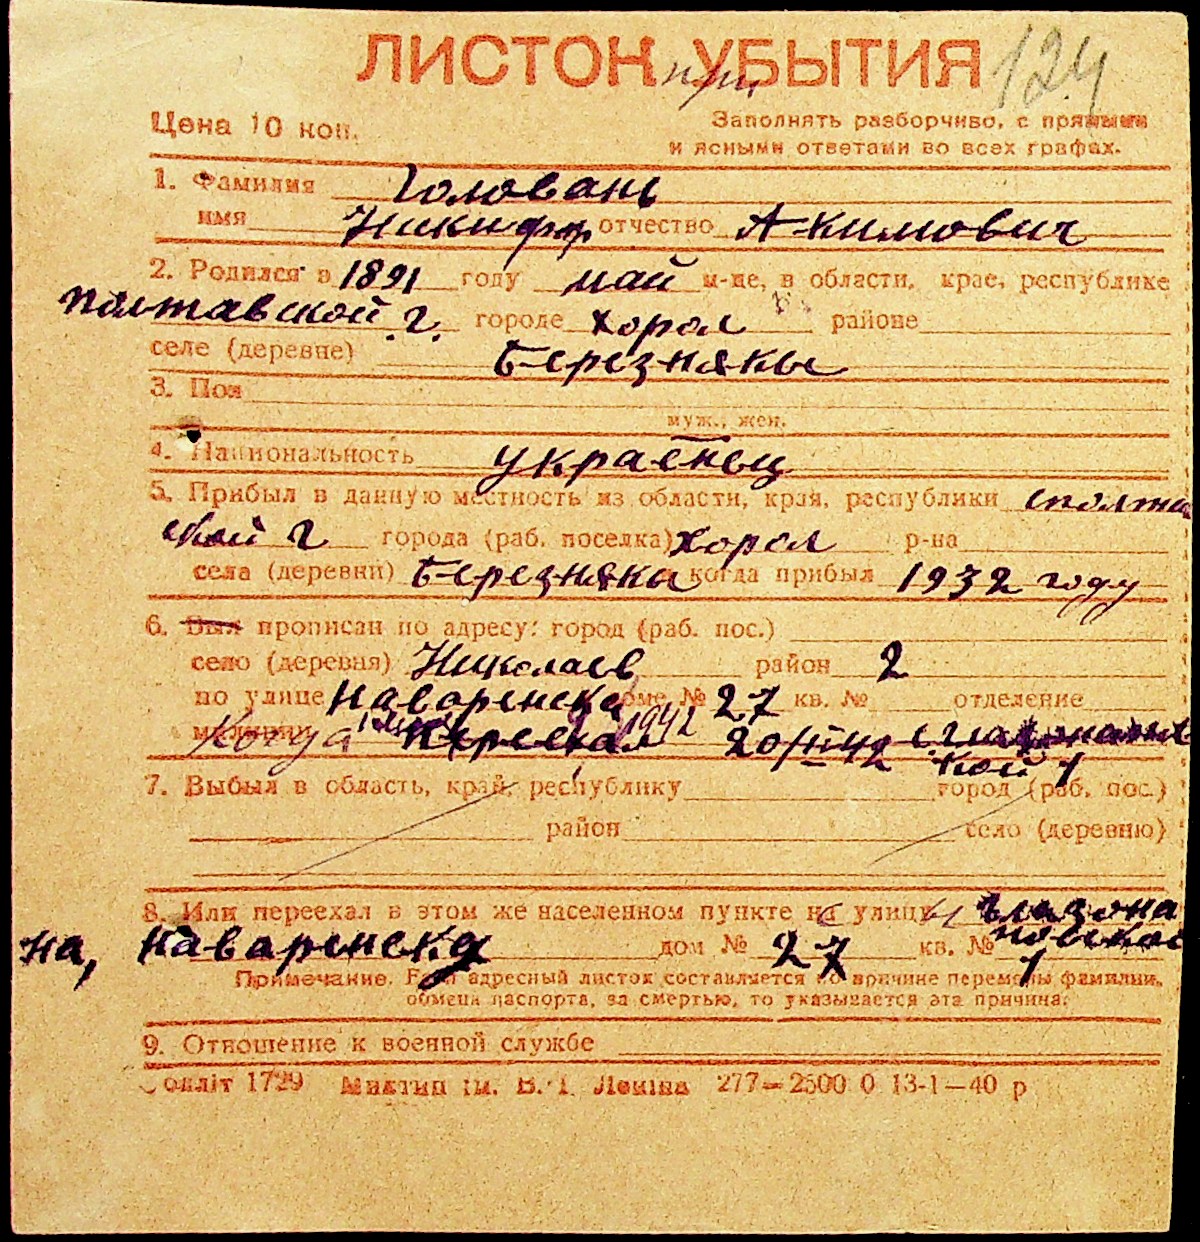 ЛИСТОК УБЫТИЯ 124
при
Цена 10 коп. Заполнять разборчиво, с прямыми
и ясными ответами во всех графах.
1. Фамилия Головань
имя Никифор отчество Акимович
2. Родился в 1891 году май м-це, в области, крае, республике
полтавской г. городе Хорол районе
селе (деревне) Березнякы
3. Пол
муж., жен.
4. Национальность украенец
5. Прибыл в данную местность из области, края, республики сполта
ской г города (раб. поселка) Хорол р-на
села (деревни) Березнякы когда прибыл 1932 году
6. Был прописан по адресу: город (раб. пос.)
село (деревня) Николаев район 2
по улице Наваренска доме № 27 кв. № отделение
милиции Когда переехал 1942 20/II 42
кой 1
7. Выбыл в область, край, республику город (раб. пос.)
район село (деревню)
8. Или переехал в этом же населенном пункте на улицу с глазона
на, Наваренска дом № 27 кв. № повской 1
Примечание. Если адресный листок составляется по причине перемены фамилии,
обмена паспорта, за смертью, то указывается эта причина.
9. Отношение к военной службе
Облліт 1729 Миктип ім. В. І. Леніна 277—2500 0 13-1—40 р